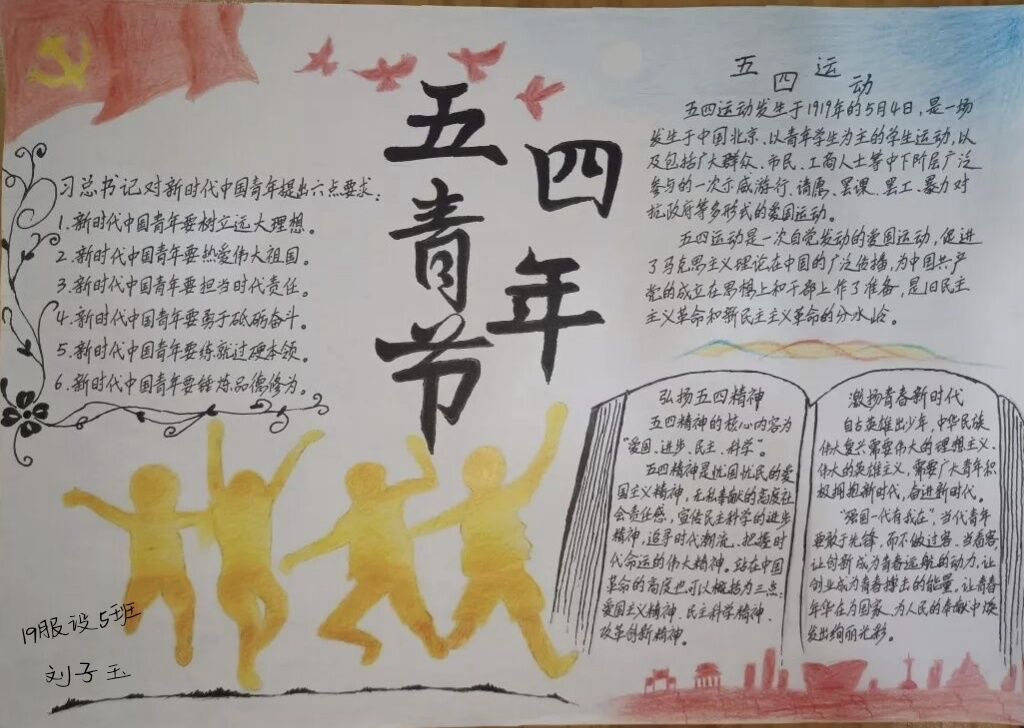 五四
青年
节
习总书记对新时代中国青年提出六点要求：
1.新时代中国青年要树立远大理想。
2.新时代中国青年要热爱伟大祖国。
3.新时代中国青年要担当时代责任。
4.新时代中国青年要勇于砥砺奋斗。
5.新时代中国青年要练就过硬本领。
6.新时代中国青年要锤炼品德修为。
五四运动
五四运动发生于1919年的5月4日，是一场
发生于中国北京、以青年学生为主的学生运动，以
及包括广大群众、市民、工商人士等中下阶层广泛
参与的一次示威游行、请愿、罢课、罢工、暴力对
抗政府等多形式的爱国运动。
五四运动是一次自觉发动的爱国运动，促进
了马克思主义理论在中国的广泛传播，为中国共产
党的成立在思想上和干部上作了准备，是旧民主
主义革命和新民主主义革命的分水岭。
弘扬五四精神
五四精神的核心内容为
“爱国、进步、民主、科学”。
五四精神是忧国忧民的爱
国主义精神，无私奉献的态度社
会责任感，宣传民主科学的进步
精神，追寻时代潮流、把握时
代命运的伟大精神。站在中国
革命的高度也可以概括为三点：
爱国主义精神、民主科学精神、
改革创新精神。
激扬青春新时代
自古英雄出少年，中华民族
伟大复兴需要伟大的理想主义、
伟大的英雄主义，需要广大青年积
极拥抱新时代，奋进新时代。
“强国一代有我在”，当代青年
要敢于先锋，而不做过客、当看客，
让创新成为青春远航的动力，让
创业成为青春搏击的能量，让青春
年华在为国家、为人民的奉献中焕
发出绚丽光彩。
19服设5班
刘子玉